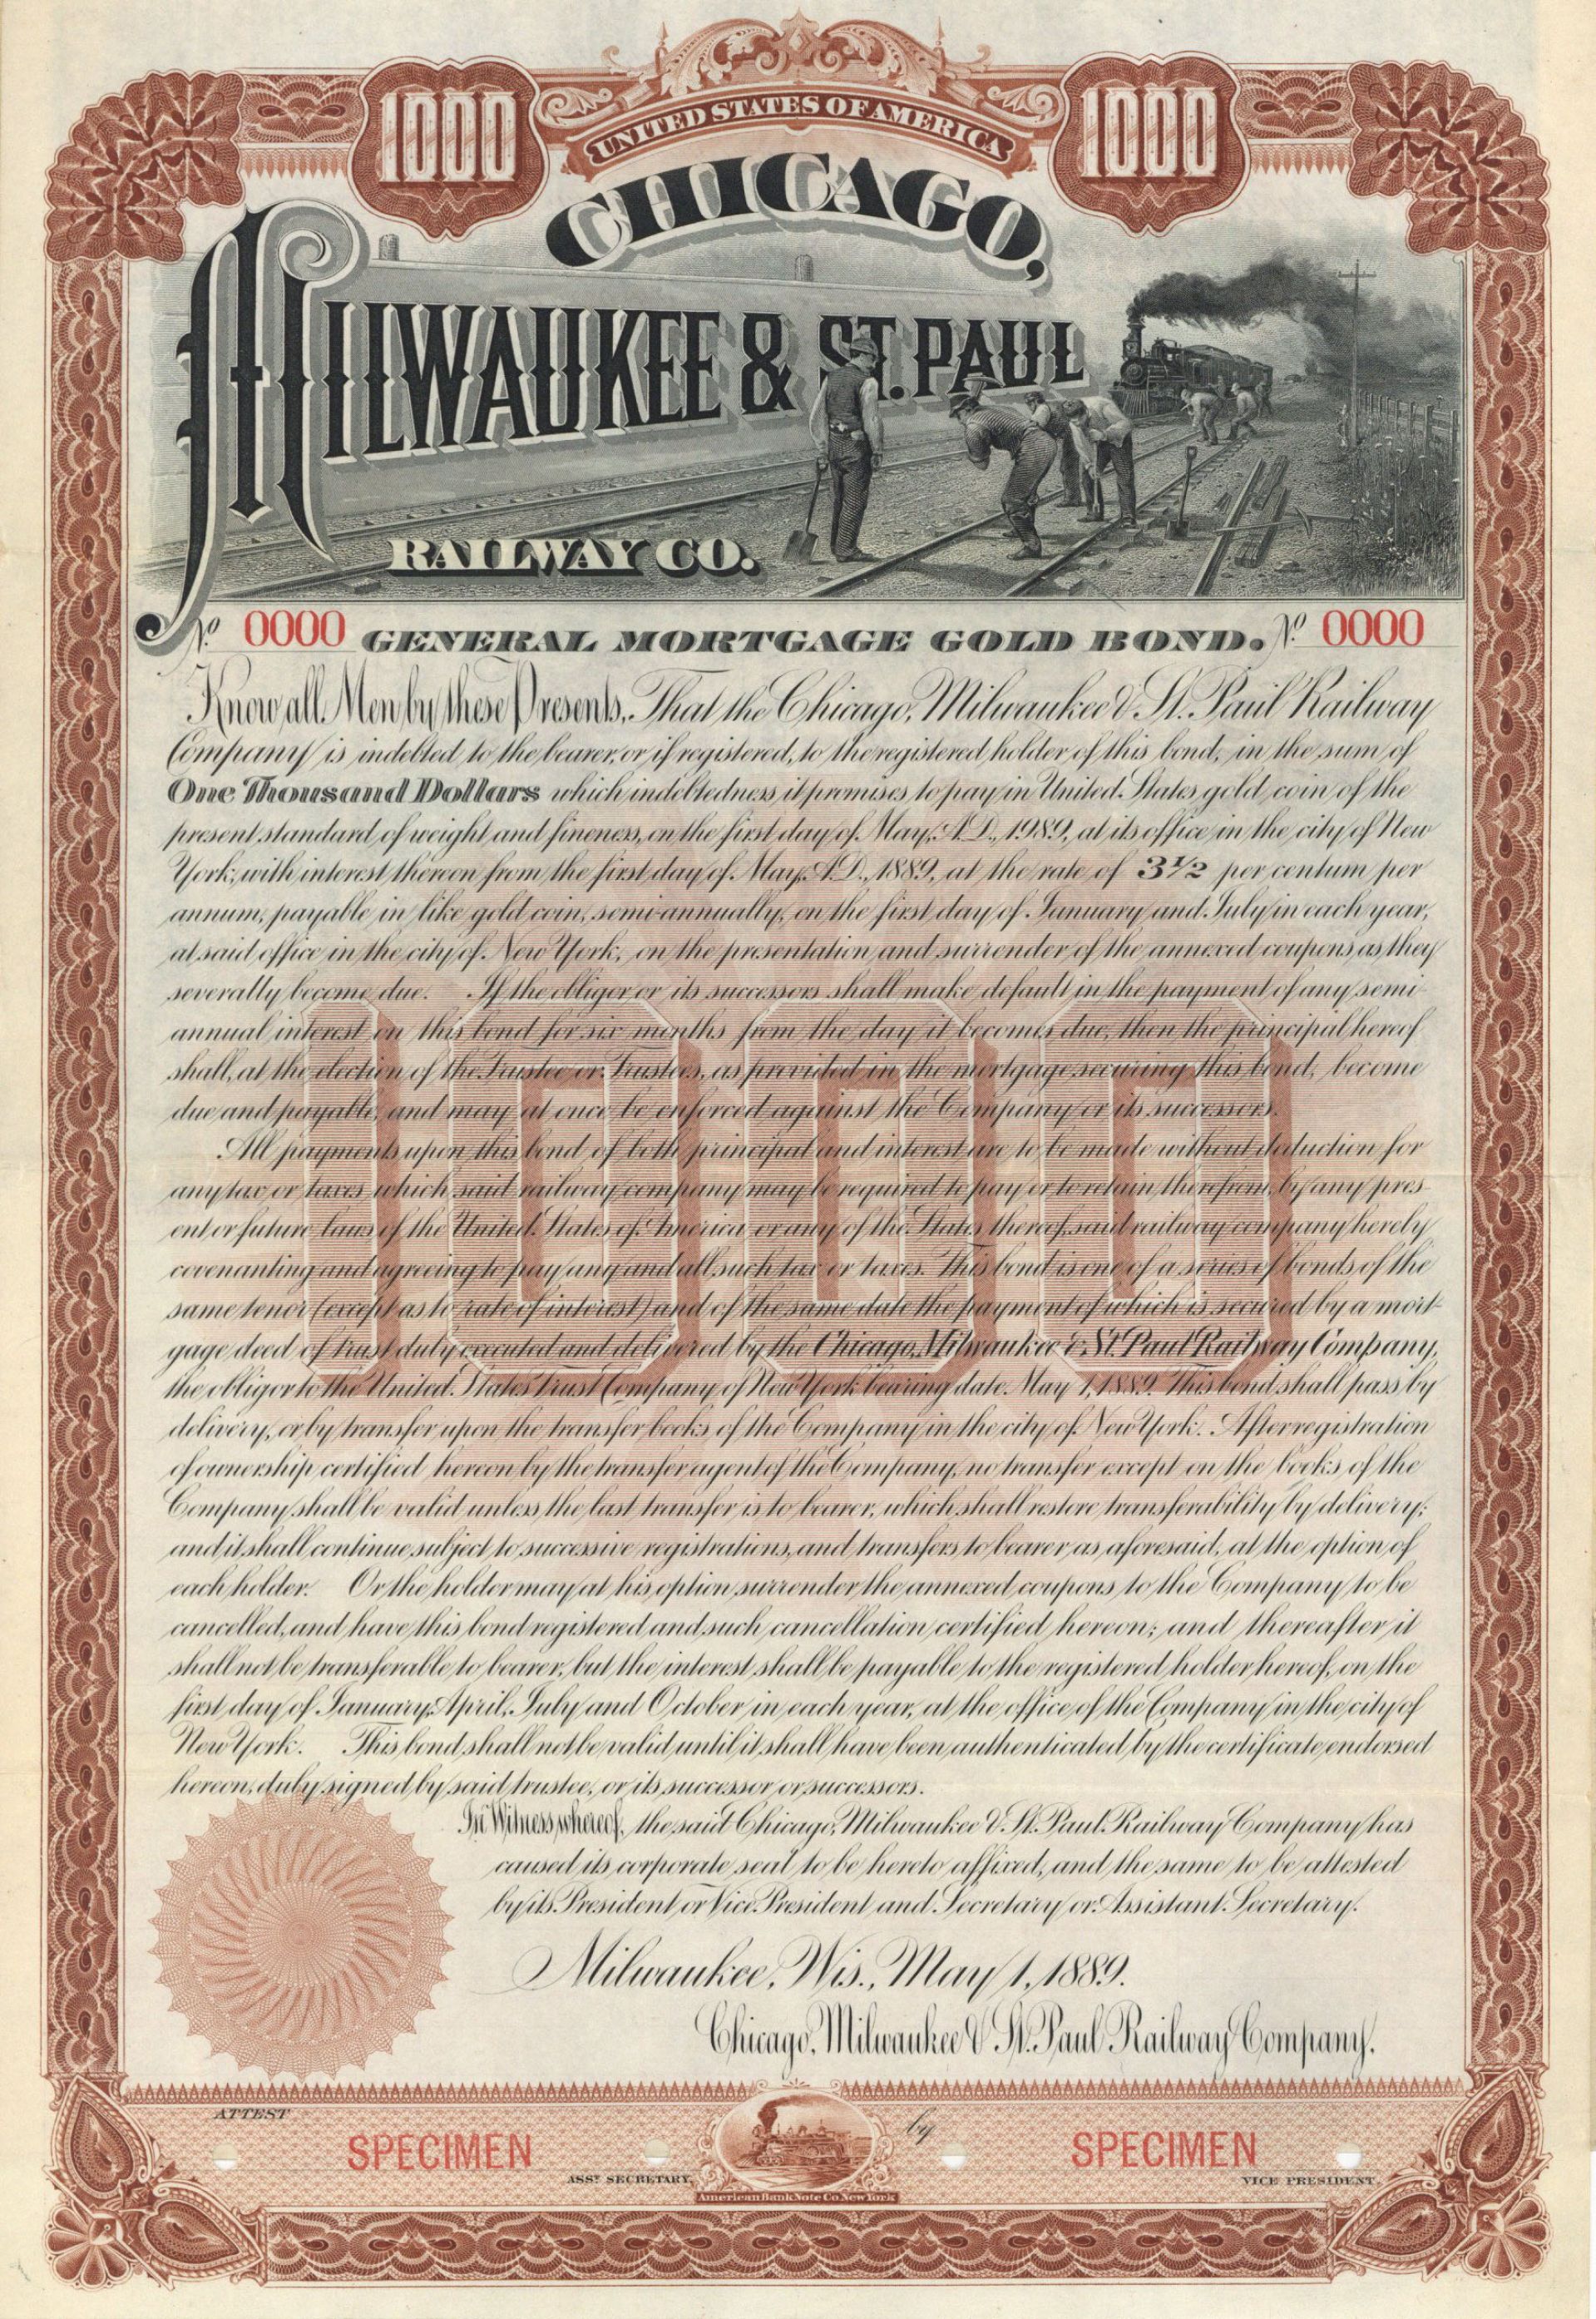 1000 UNITED STATES OF AMERICA 1000
CHICAGO,
MILWAUKEE & ST. PAUL
RAILWAY CO.
No. 0000 GENERAL MORTGAGE GOLD BOND. No. 0000
Know all Men by these Presents, That the Chicago, Milwaukee & St. Paul Railway
Company is indebted to the bearer, or if registered, to the registered holder of this bond, in the sum of
One Thousand Dollars which indebtedness it promises to pay in United States gold coin of the
present standard of weight and fineness, on the first day of May, A.D., 1989, at its office in the city of New
York, with interest thereon from the first day of May, A.D., 1889, at the rate of 3½ per centum per
annum, payable in like gold coin, semi-annually, on the first day of January and July in each year,
at said office in the city of New York, on the presentation and surrender of the annexed coupons as they
severally become due. If the obligor or its successors shall make default in the payment of any semi-
annual interest on this bond for six months from the day it becomes due, then the principal hereof
shall, at the election of the Trustee or Trustees, as provided in the mortgage securing this bond, become
due and payable, and may at once be enforced against the Company or its successors.
All payments upon this bond of both principal and interest are to be made without deduction for
any tax or taxes which said railway company may be required to pay or to retain therefrom, by any pres-
ent or future laws of the United States of America or any of the States thereof, said railway company hereby
covenanting and agreeing to pay any and all such tax or taxes. This bond is one of a series of bonds of the
same tenor (except as to rate of interest) and of the same date the payment of which is secured by a mort-
gage deed of trust duly executed and delivered by the Chicago, Milwaukee & St. Paul Railway Company,
the obligor to the United States Trust Company of New York bearing date May 1, 1889. This bond shall pass by
delivery, or by transfer upon the transfer books of the Company in the city of New York. After registration
of ownership certified hereon by the transfer agent of the Company, no transfer except on the books of the
Company shall be valid unless the last transfer is to bearer, which shall restore transferability by delivery;
and it shall continue subject to successive registrations, and transfers to bearer as aforesaid, at the option of
each holder. Or the holder may at his option surrender the annexed coupons to the Company to be
cancelled, and have this bond registered and such cancellation certified hereon; and thereafter it
shall not be transferable to bearer, but the interest shall be payable to the registered holder hereof, on the
first day of January, April, July and October in each year, at the office of the Company in the city of
New York. This bond shall not be valid until it shall have been authenticated by the certificate endorsed
hereon, duly signed by said trustee, or its successor or successors.
In Witness whereof, the said Chicago, Milwaukee & St. Paul Railway Company has
caused its corporate seal to be hereto affixed, and the same to be attested
by its President or Vice President and Secretary or Assistant Secretary.
Milwaukee, Wis., May 1, 1889.
Chicago, Milwaukee & St. Paul Railway Company,
ATTEST by
SPECIMEN SPECIMEN
ASST SECRETARY. VICE PRESIDENT.
American Bank Note Co. New York
1000